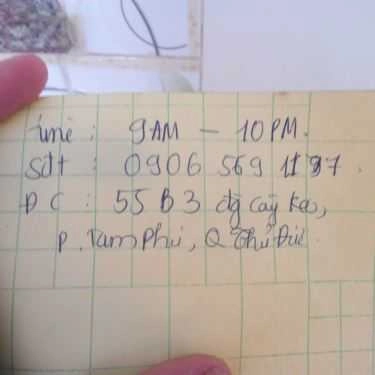 time : 9AM - 10PM.
Sđt : 0906 569 1197.
ĐC : 55 B3 đg Cây Keo,
P. Tam Phú, Q Thủ Đức.